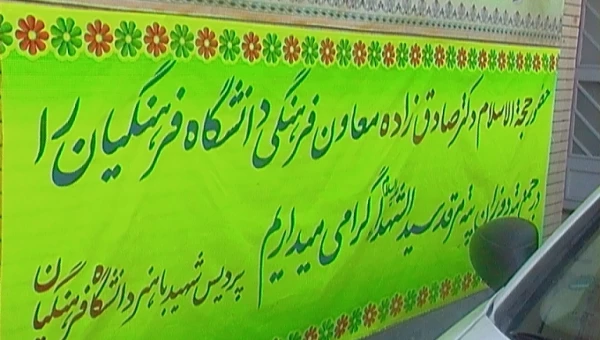 حضور حجة الاسلام دکتر صادق زاده معاون فرهنگی دانشگاه فرهنگیان را
در جمع مرقد سیدالشهدا گرامی میداریم
پردیس شهید باهنر دانشگاه فرهنگیان